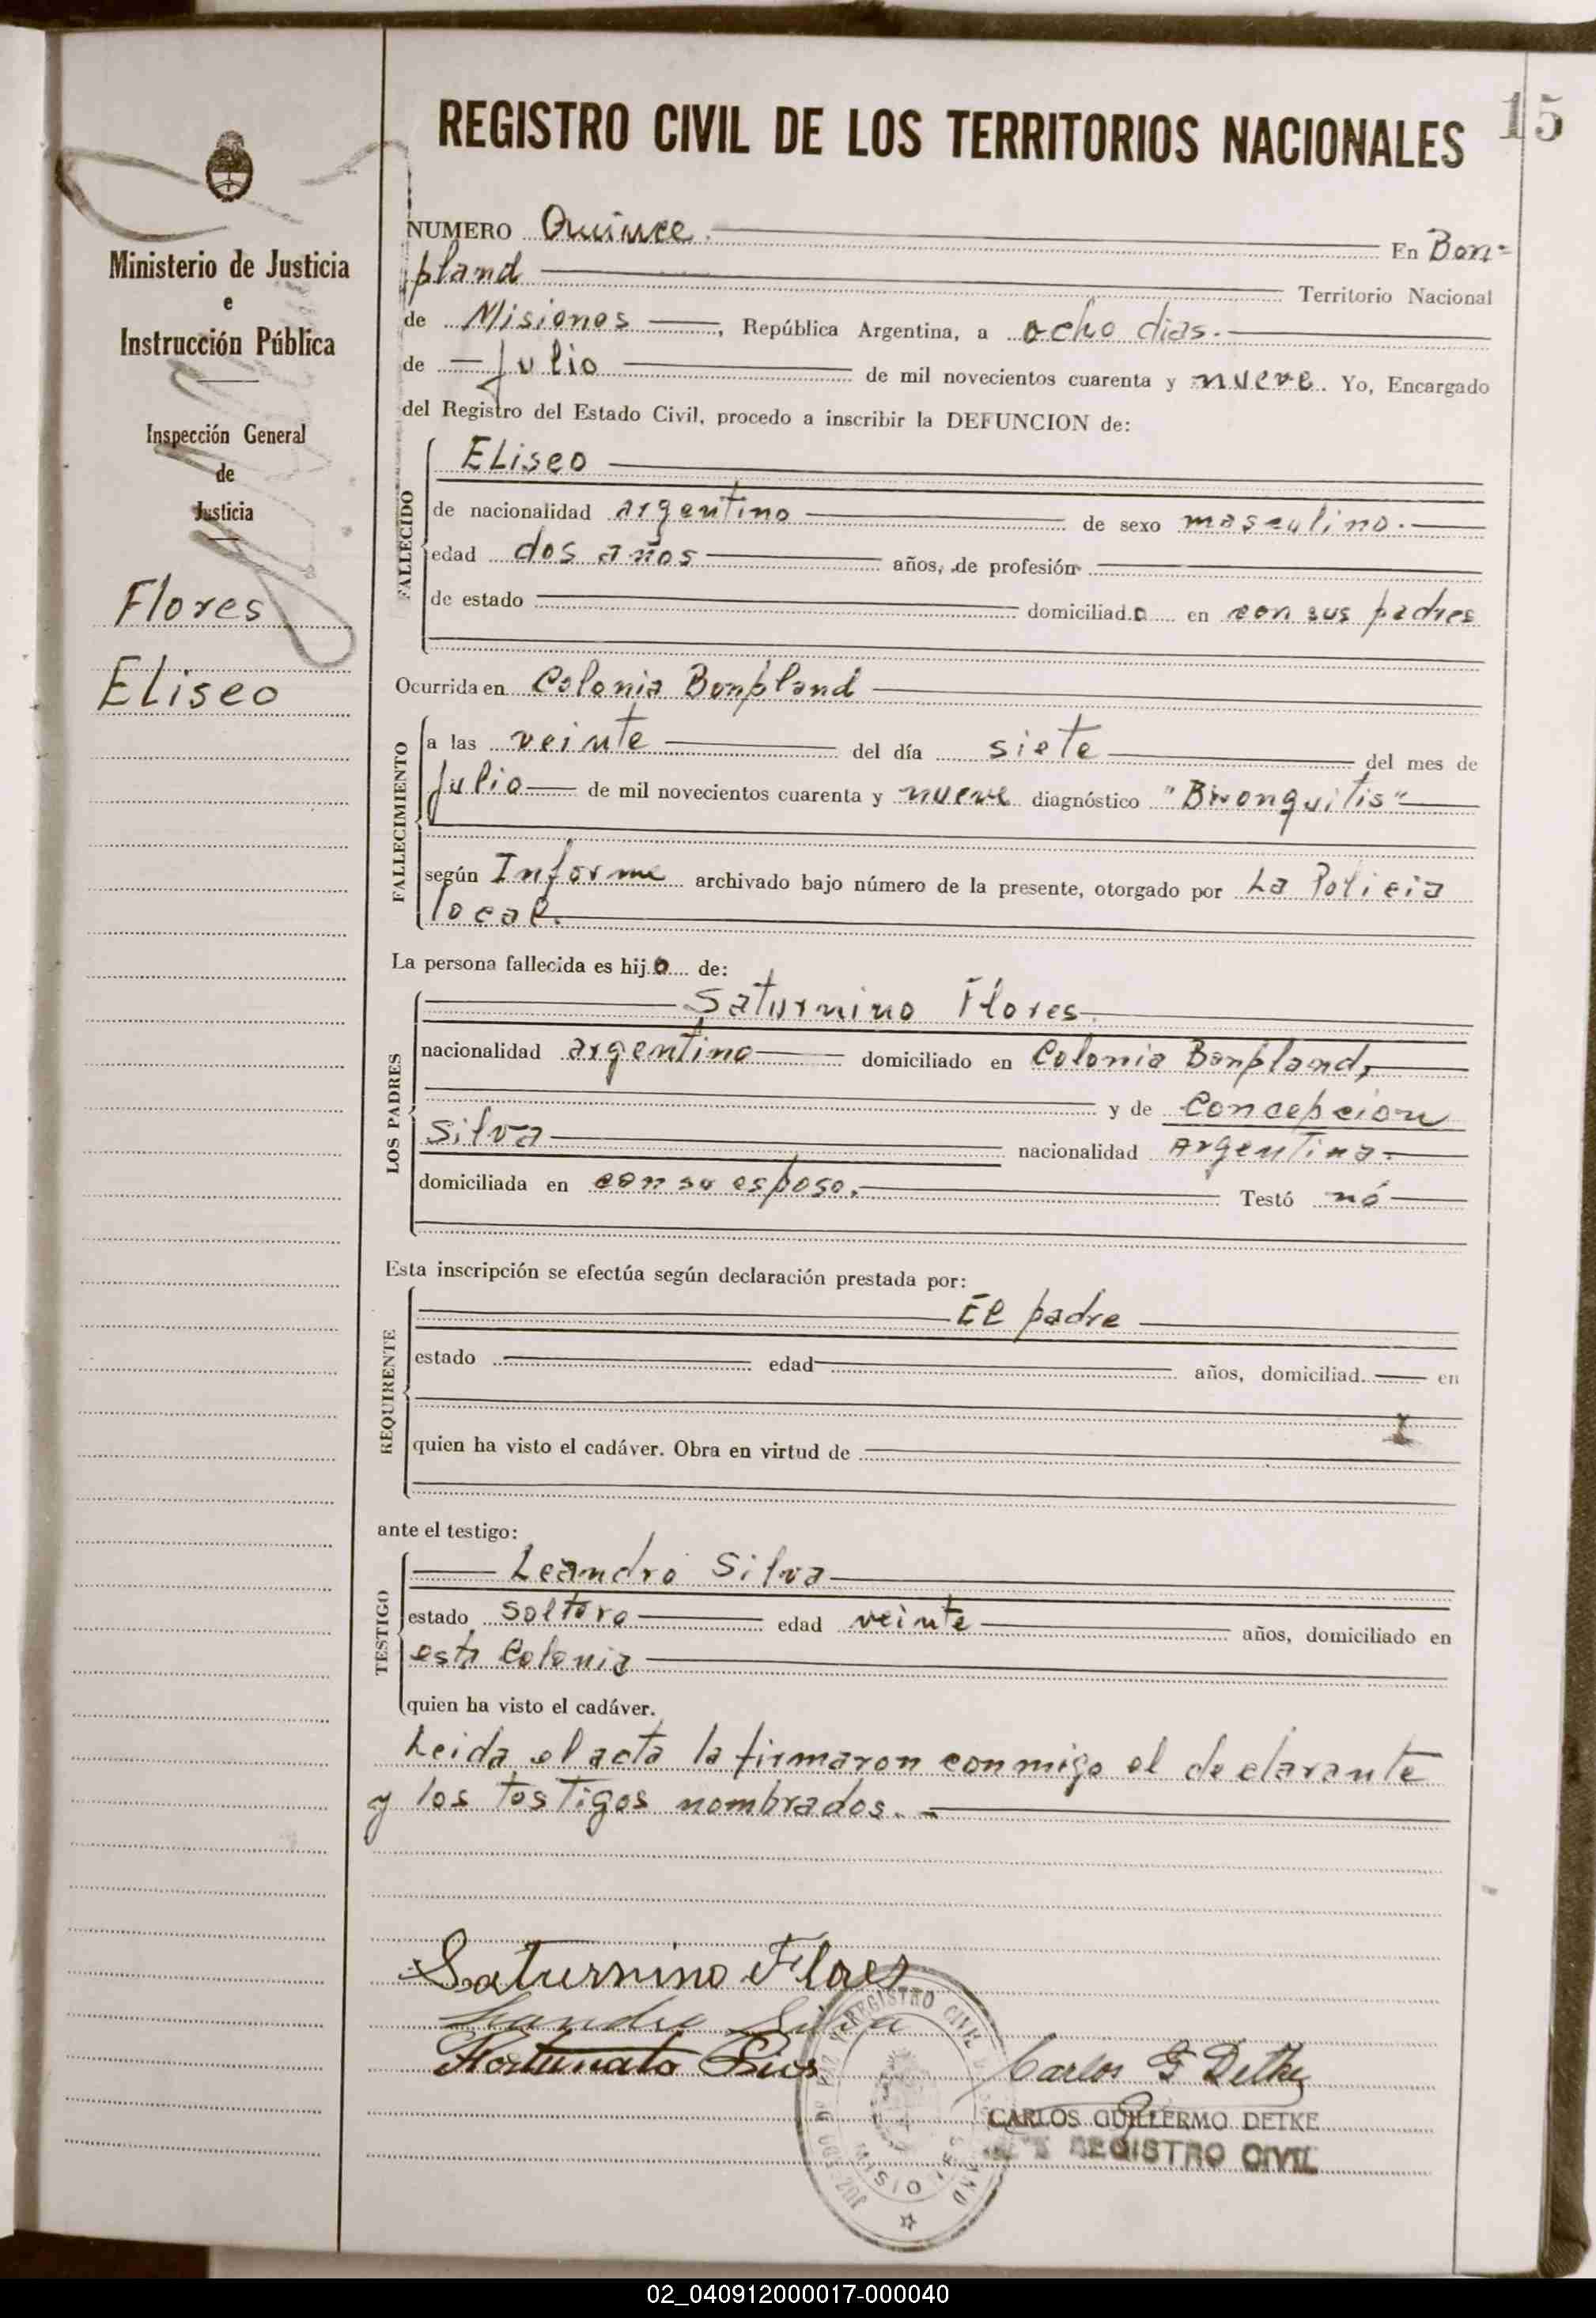 REGISTRO CIVIL DE LOS TERRITORIOS NACIONALES
15
Ministerio de Justicia
e
Instrucción Pública
Inspección General
de
Justicia
Flores
Eliseo
NUMERO Quince. En Bon=
pland Territorio Nacional
de Misiones, República Argentina, a ocho dias.
de Julio de mil novecientos cuarenta y nueve. Yo, Encargado
del Registro del Estado Civil, procedo a inscribir la DEFUNCION de:
FALLECIDO
Eliseo
de nacionalidad argentino de sexo masculino.
edad dos años años, de profesión
de estado domiciliad.o en con sus padres
Ocurrida en Colonia Bonpland
FALLECIMIENTO
a las veinte del día siete del mes de
Julio de mil novecientos cuarenta y nueve diagnóstico "Bronquitis"
según Informe archivado bajo número de la presente, otorgado por La Policia
local.
La persona fallecida es hij.o de:
LOS PADRES
Saturnino Flores.
nacionalidad argentino domiciliado en Colonia Bonpland,
y de Concepcion
Silva nacionalidad Argentina.
domiciliada en con su esposo. Testó nó
Esta inscripción se efectúa según declaración prestada por:
REQUIRENTE
El padre
estado edad años, domiciliad. en
quien ha visto el cadáver. Obra en virtud de
ante el testigo:
TESTIGO
Leandro Silva
estado soltero edad veinte años, domiciliado en
esta Colonia
quien ha visto el cadáver.
Leida el acta la firmaron conmigo el declarante
y los testigos nombrados.
Saturnino Flores
Leandro Silva
Fortunato
Carlos G Detke
CARLOS GUILLERMO DETKE
REGISTRO CIVIL
02_040912000017-000040